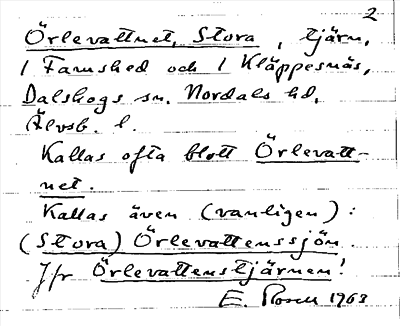 2
Örlevattnet, Stora, tjärn,
i Famshed och i Kläppesnäs,
Dalskogs sn. Nordals hd,
Älvsb. l.
Kallas ofta blott Örlevatt-
net.
Kallas även (vanligen):
(Stora) Örlevattenssjön.
Jfr Örlevattenstjärnen!
E. Rosell 1963